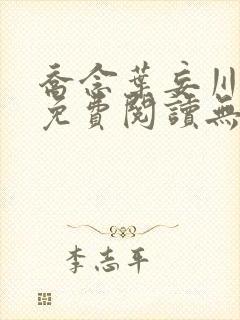 喬念葉妄川
免費閱讀無
李志平